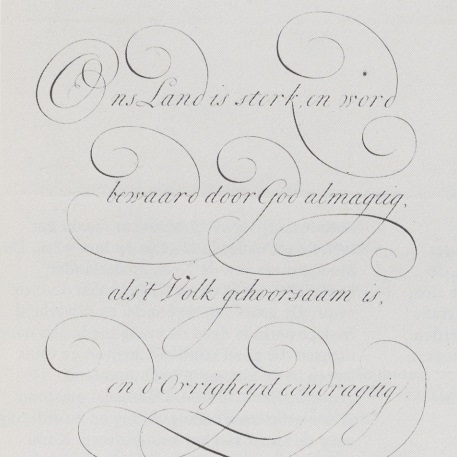 Ons Land is sterk, en word
bewaard door God almagtig,
als't Volk gehoorsaam is,
en d'Ovrigheyd eendragtig.